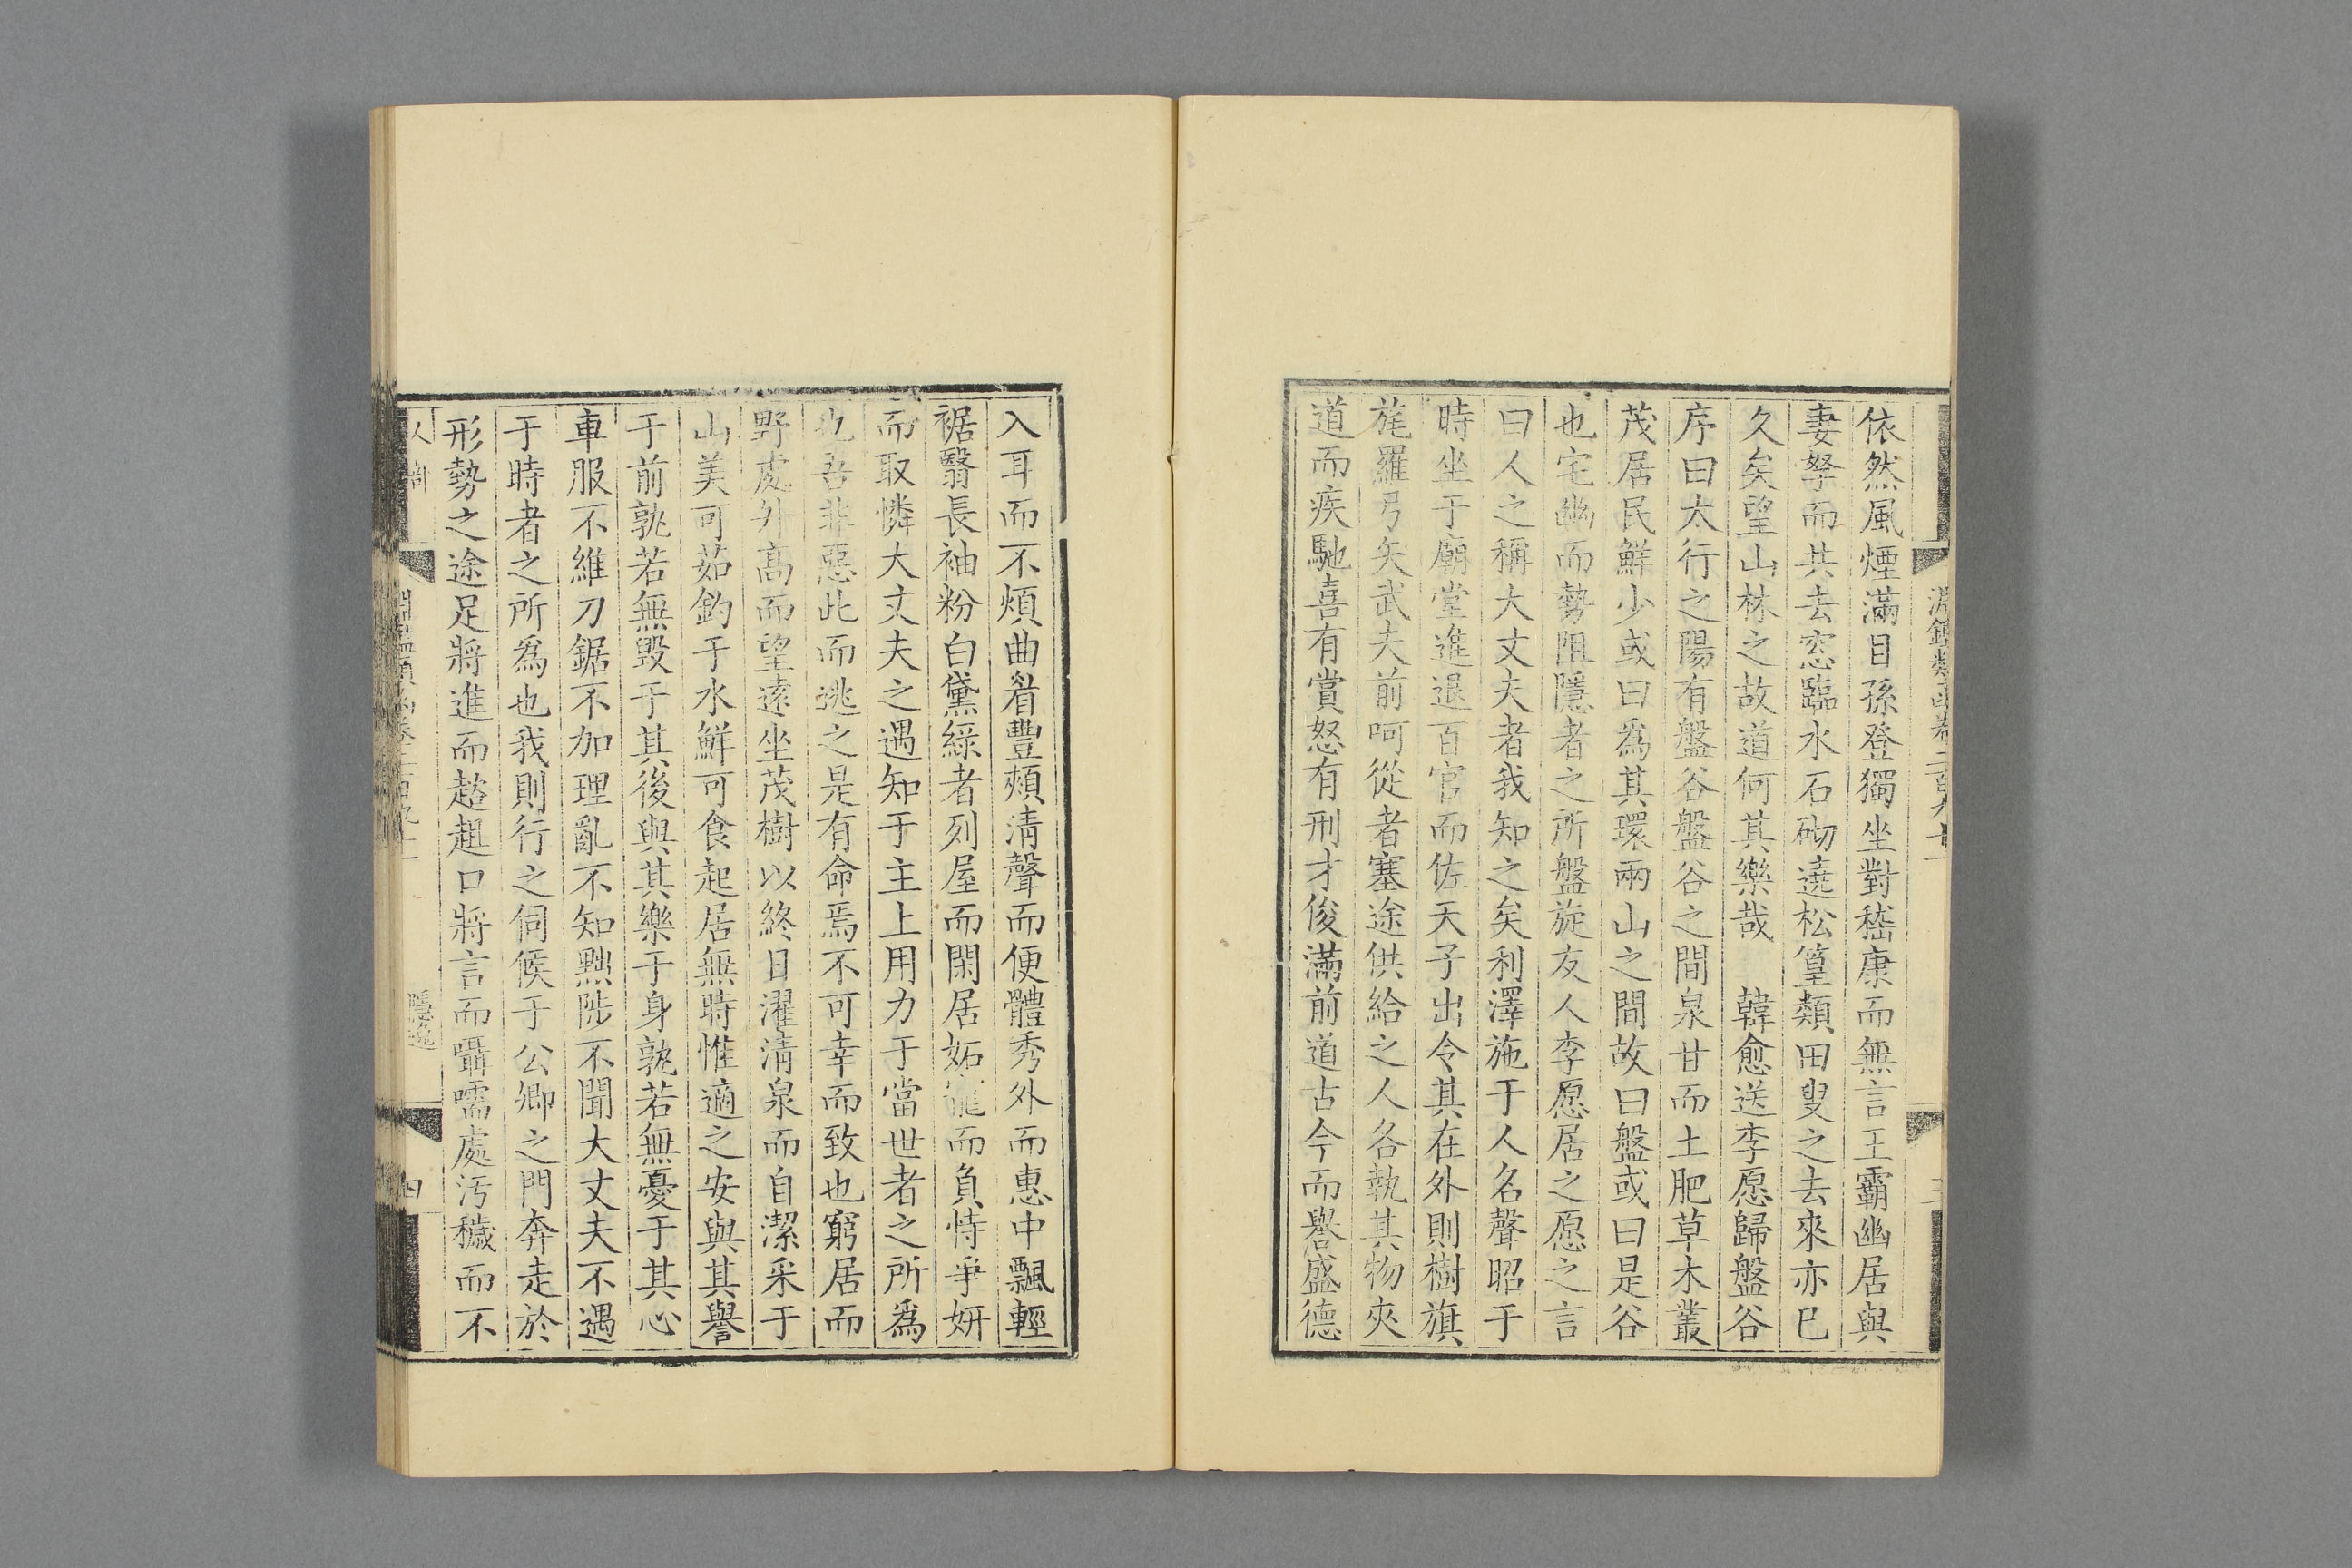 淵鑑類函卷二百九十一
三
依然風煙滿目孫登獨坐對嵇康而無言王霸幽居與
妻孥而共去窓臨水石砌遶松篁類田叟之去來亦已
久矣望山林之故道何其樂哉　韓愈送李愿歸盤谷
序曰太行之陽有盤谷盤谷之間泉甘而土肥草木叢
茂居民鮮少或曰爲其環兩山之間故曰盤或曰是谷
也宅幽而勢阻隱者之所盤旋友人李愿居之愿之言
曰人之稱大丈夫者我知之矣利澤施于人名聲昭于
時坐于廟堂進退百官而佐天子出令其在外則樹旗
旄羅弓矢武夫前呵從者塞途供給之人各執其物夾
道而疾馳喜有賞怒有刑才俊滿前道古今而譽盛德
入耳而不煩曲眉豐頰淸聲而便體秀外而惠中飄輕
裾翳長袖粉白黛綠者列屋而閑居妬寵而負恃爭妍
而取憐大丈夫之遇知于主上用力于當世者之所爲
也吾非惡此而逃之是有命焉不可幸而致也窮居而
野處升高而望遠坐茂樹以終日濯淸泉而自潔采于
山美可茹釣于水鮮可食起居無時惟適之安與其譽
于前孰若無毀于其後與其樂于身孰若無憂于其心
車服不維刀鋸不加理亂不知黜陟不聞大丈夫不遇
于時者之所爲也我則行之伺候于公卿之門奔走於
形勢之途足將進而趑趄口將言而囁嚅處汚穢而不
人部
淵鑑類函卷二百九十一
隱逸
四